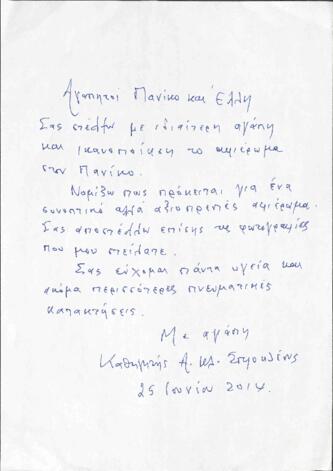 Αγαπητοί Πανίκο και Έλλη
Σας στέλλω με ιδιαίτερη αγάπη
και ικανοποίηση το αφιέρωμα
στον Πανίκο.
Νομίζω πως πρόκειται για ένα
συνοπτικό αλλά αξιοπρεπές αφιέρωμα.
Σας αποστέλλω επίσης τις φωτογραφίες
που μου στείλατε.
Σας εύχομαι πάντα υγεία και
ακόμα περισσότερες πνευματικές
κατακτήσεις.
Με αγάπη
Καθηγητής Α. Κλ.
25 Ιουνίου 2014.